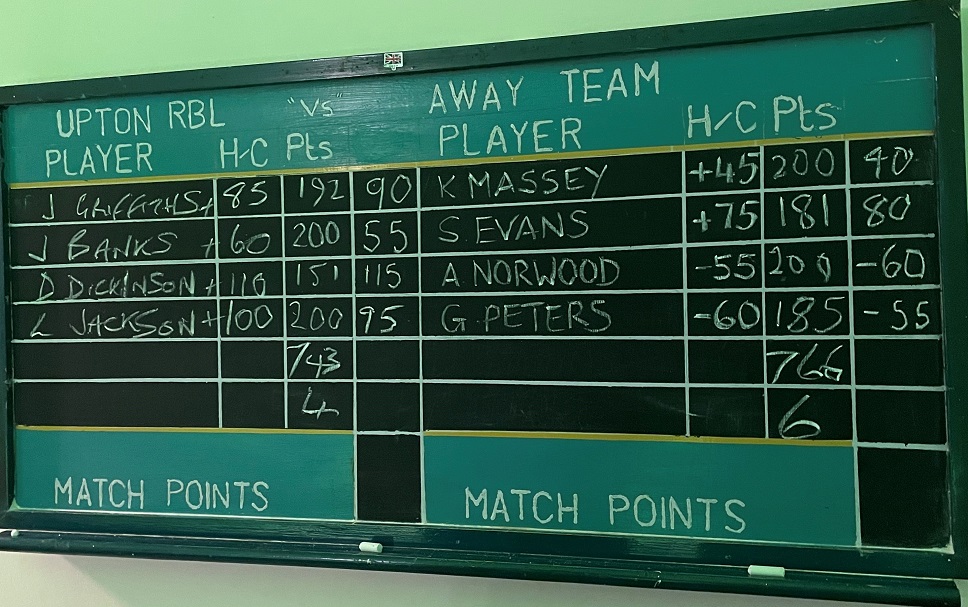 UPTON RBL "Vs" AWAY TEAM
PLAYER H/C Pts PLAYER H/C Pts
J GRIFFITHS + 85 192 90 K MASSEY +45 200 40
J BANKS + 60 200 55 S. EVANS +75 181 80
D DICKINSON + 110 151 115 A. NORWOOD -55 200 -60
L JACKSON + 100 200 95 G. PETERS -60 185 -55
743 766
4 6
MATCH POINTS MATCH POINTS